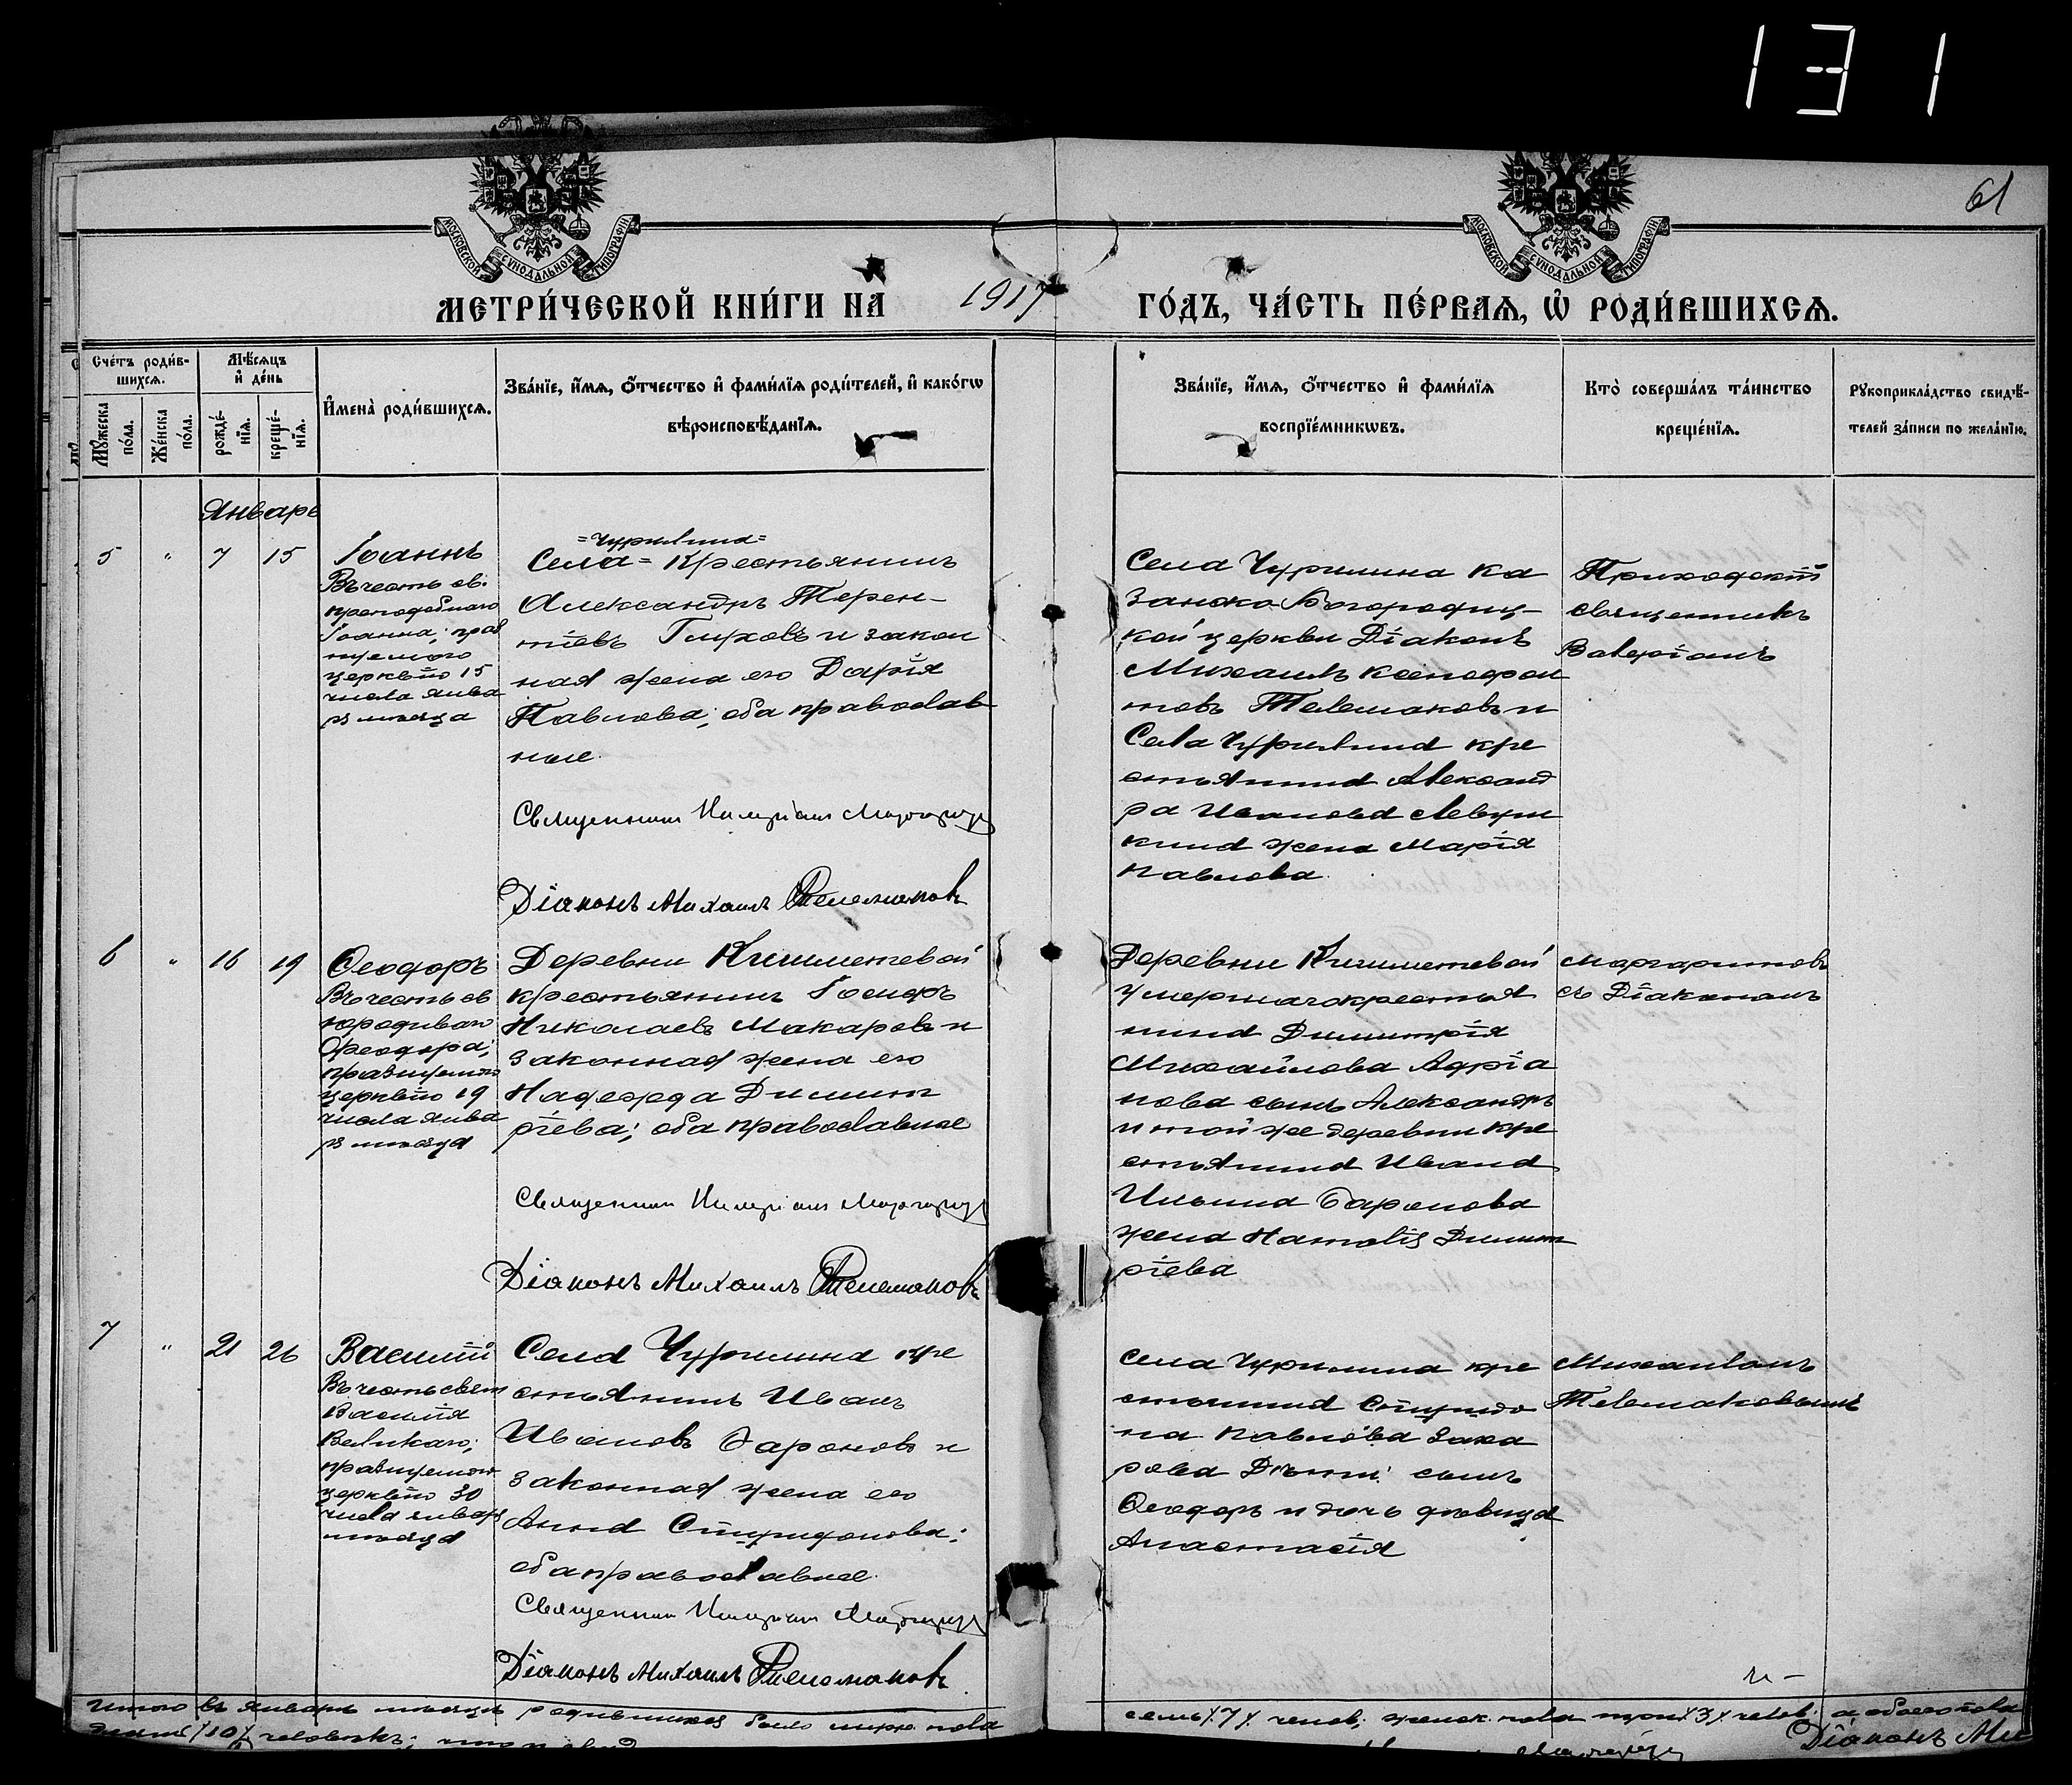 131
61
МОСКОВСКОЙ СѴНОДАЛЬНОЙ ТИПОГРАФІИ
МОСКОВСКОЙ СѴНОДАЛЬНОЙ ТИПОГРАФІИ
МЕТРИ́ЧЕСКОЙ КНИ́ГИ НА 1917 ГО́ДЪ, ЧА́СТЬ ПЕ́РВАѦ, Ѡ҆ РОДИ́ВШИХСѦ.
Сче́тъ роди́в-
шихсѧ.
Мꙋ́жеска по́ла.
Же́нска по́ла.
Мѣ́сѧцъ и҆ де́нь
рожде́-
нїѧ.
креще́-
нїѧ.
И҆мена̀ роди́вшихсѧ.
Зва́нїе, и҆́мѧ, ѻ҆́тчество и҆ фами́лїѧ роди́телей, и҆ како́гѡ
вѣроисповѣ́данїѧ.
Зва́нїе, и҆́мѧ, ѻ҆́тчество и҆ фами́лїѧ
воспрїе́мникѡвъ.
Кто̀ соверша́лъ та́инство
креще́нїѧ.
Рꙋкоприкла́дство свидѣ́-
телей за́писи по жела́нїю.
Январь
5 " 7 15
Іоаннъ
Въ честь св.
преподобнаго
Іоанна; праз
нуемаго
церквію 15
числа янва
ря мѣсяца
=Чурилина=
Села = Крестьянинъ
Александръ Терен-
тіевъ Глуховъ и закон
ная жена его Дарія
Павлова; оба православ
ные.
Священникъ Валеріанъ Маргаритовъ
Діаконъ Михаилъ Телемаковъ
Села Чурилина Ка
занско-Богородиц-
кой церкви Діаконъ
Михаилъ Ксенофон
товъ Телемаковъ и
Села Чурилина кре
стьянина Александ
ра Иванова Левуш
кина жена Марія
Павлова.
Приходскій
священникъ
Валеріанъ
6 " 16 19
Ѳеодоръ
Въ честь св
юродиваго
Ѳеодора;
празнуемаго
церквію 19
числа янва
ря мѣсяца
Деревни
крестьянинъ Іосифъ
Николаевъ Макаровъ и
законная жена его
Надежда Димит
ріева; оба православные
Священникъ Валеріанъ Маргаритовъ
Діаконъ Михаилъ Телемаковъ
Деревни
умершаго крестья
нина Димитрія
Михайлова Адріа
нова сынъ Александръ
и той же деревни кре
стьянина Ивана
Ильина Фаронова
жена Наталія Димит
ріева
Маргаритовъ
съ Діакономъ
7 " 21 26
Василій
Въ честь свят
Василія
Великаго;
празнуемаго
церквію 30
числа январь
мѣсяца
Села Чурилина кре
стьянинъ Иванъ
Ивановъ Фароновъ и
законная жена его
Анна Спиридонова;
оба православные.
Священникъ Валеріанъ Маргаритовъ
Діаконъ Михаилъ Телемаковъ
Села Чурилина кре
стьянина Спиридо
на Павлова Заха
рова Дѣти: сынъ
Ѳеодоръ и дочь дѣвица
Анастасія
Михаиломъ
Телемаковымъ
Итого въ январѣ мѣсяцѣ родившихся было муж. пола
семь /7/ челов; женск. пола три /3/ челов; а обоего пола
/10/ человѣкъ;
Діаконъ Ми